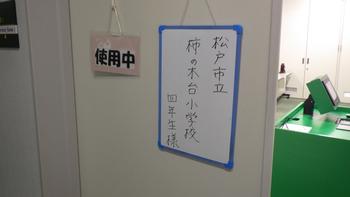 使用中
松戸市立
柿の木台小学校
四年生様